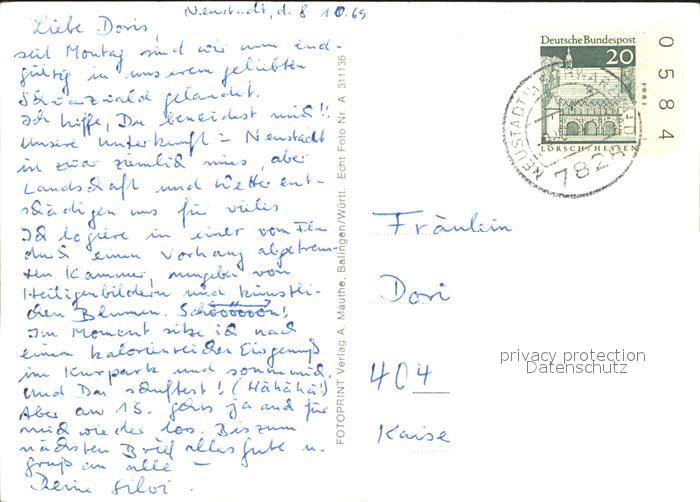 Neustadt, d. 8 10.69
Liebe Doris,
seit Montag sind wir nun end-
gültig in unserem geliebten
Schwarzwald gelandet.
Ich hoffe, Du beneidest mich!!
Unsere Unterkunft in Neustadt
ist zwar ziemlich mies, aber
Landschaft und Wetter ent-
schädigen uns für vieles.
Ich logiere in einer vom Flur
durch einen Vorhang abgetrenn-
ten Kammer, umgeben von
Heiligenbildern und künstli-
chen Blumen. Schöööööön!
Im Moment sitze ich nach
einem kalorienreichen Eisgenuß
im Kurpark und sonne mich.
Und Du schuftest! (Hähähä!)
Aber am 15. gehts ja auch für
mich wieder los. Bis zum
nächsten Brief alles Gute u.
Gruß an alle –
Deine Silvi.
FOTOPRINT Verlag A. Mauthe, Balingen/Württ. Echt Foto Nr. A 311136
Deutsche Bundespost
20
LORSCH/HESSEN
0584
NEUSTADT SCHWARZWALD
782
Fräulein
Dori
404
Kaise
privacy protection
Datenschutz